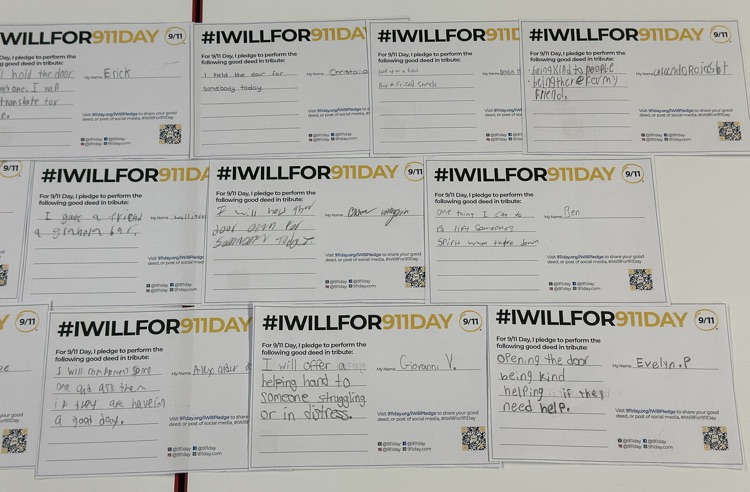 IWILLFOR911DAY 9/11
Day, I pledge to perform the
good deed in tribute:
hold the door
one. I will
translate for
My Name Erick
Visit 911day.org/IWillPledge to share your good
deed, or post of social media, #IWillFor911Day
@911day @911day
@911day 911day.com
#IWILLFOR911D
For 9/11 Day, I pledge to perform the
following good deed in tribute:
I held the door for
somebody today
My Name
Visit 911day.org/IWillP
deed, or post of social m
@911day @911day
@911day 911day.com
#IWILLFOR911D
For 9/11 Day, I pledge to perform the
following good deed in tribute:
My Name
Visit 911day.org/IWillP
deed, or post of social m
@911day @911day
@911day 911day.com
#IWILLFOR911DAY 9/11
For 9/11 Day, I pledge to perform the
following good deed in tribute:
· being kind to people
· being there for my
friend.
My Name
Visit 911day.org/IWillPledge to share your good
deed, or post of social media, #IWillFor911Day
@911day @911day
@911day 911day.com
9/11
#IWILLFOR911DA
For 9/11 Day, I pledge to perform the
following good deed in tribute:
I gave a friend
a graham bar.
My Name
Visit 911day.org/IWillPle
deed, or post of social me
@911day @911day
@911day 911day.com
#IWILLFOR911DAY 9/11
For 9/11 Day, I pledge to perform the
following good deed in tribute:
I will hold
door open for
My Name
Visit 911day.org/IWillPledge to share your
deed, or post of social media, #IWillFor911
@911day @911day
@911day 911day.com
#IWILLFOR911DAY 9/11
For 9/11 Day, I pledge to perform the
following good deed in tribute:
one thing I can do
is lift someones
spirit when there down
My Name Ben
Visit 911day.org/IWillPledge to share your good
deed, or post of social media, #IWillFor911Day
@911day @911day
@911day 911day.com
9/11
#IWILLFOR911DAY
For 9/11 Day, I pledge to perform the
following good deed in tribute:
I will
one and ask them
if they are
a good day.
My Name
Visit 911day.org/IWillPledge
deed, or post of social media
@911day @911day
@911day 911day.com
#IWILLFOR911DAY 9/11
For 9/11 Day, I pledge to perform the
following good deed in tribute:
I will offer a
helping hand to
someone struggling
or in distress.
My Name Giovanni V.
Visit 911day.org/IWillPledge to share your good
deed, or post of social media, #IWillFor911Day
@911day @911day
@911day 911day.com
#IWILLFOR911DAY 9/11
For 9/11 Day, I pledge to perform the
following good deed in tribute:
opening the door
being kind
helping if they
need help.
My Name Evelyn.P
Visit 911day.org/IWillPledge to share your good
deed, or post of social media, #IWillFor911Day
@911day @911day
@911day 911day.com